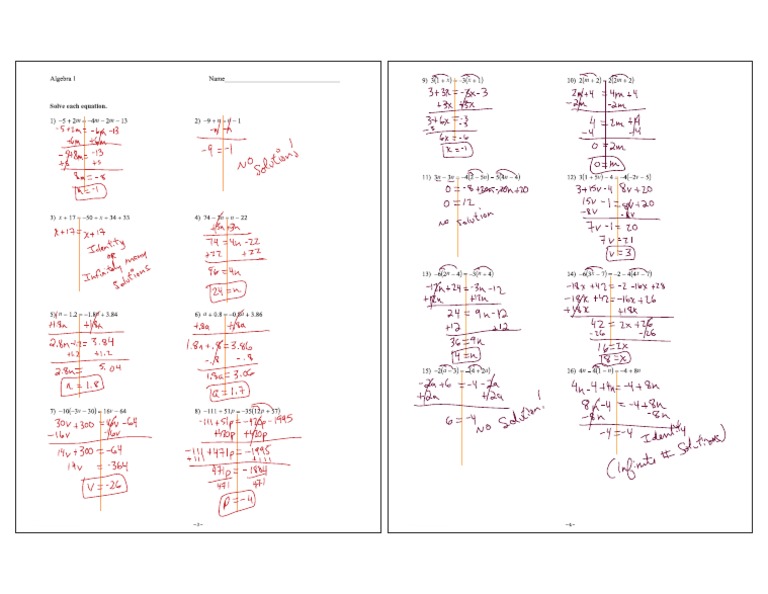 Algebra 1
Name
Solve each equation.
1) −5 + 2n = −4n − 2n − 13
-5+2n = -6n -13
+6n +6n
-5+8n = -13
+5 +5
8n = -8
n = -1
2) −9 + n = n − 1
-n -n
-9 = -1
NO Solutions!
3) x + 17 = −50 + x + 34 + 33
x+17 = x+17
Identity
OR
Infinitely many
Solutions
4) 74 − 3n = n − 22
+3n +3n
74 = 4n -22
+22 +22
96 = 4n
24 = n
5) n − 1.2 = −1.8n + 3.84
+1.8n +1.8n
2.8n -1.2 = 3.84
+1.2 +1.2
2.8n = 5.04
n = 1.8
6) a + 0.8 = −0.8a + 3.86
+.8a +.8a
1.8a + .8 = 3.86
-.8 -.8
1.8a = 3.06
a = 1.7
7) −10(−3v − 30) = 16v − 64
30v +300 = 16v -64
-16v -16v
14v + 300 = -64
14v = -364
V = -26
8) −111 + 51p = −35(12p + 57)
-111 +51p = -420p -1995
+420p +420p
-111 +471p = -1995
+111 +111
471p = -1884
471 471
P = -4
9) 3(1 + x) = −3(x + 1)
3+3x = -3x -3
+3x +3x
3+6x = -3
-3 -3
6x = -6
x = -1
10) 2(m + 2) = 2(2m + 2)
2m+4 = 4m +4
-2m -2m
4 = 2m +4
-4 -4
0 = 2m
0 = m
11) 3v − 3v = −4(2 − 5v) − 5(4v − 4)
0 = -8 +20v -20v +20
0 = 12
no solution
12) 3(1 + 5v) − 4 = −4(−2v − 5)
3+15v -4 8v +20
15v -1 = 8v +20
-8v -8v
7v -1 = 20
7v = 21
V = 3
13) −6(2n − 4) = −3(n + 4)
-12n +24 = -3n -12
+12n +12n
24 = 9n -12
+12 +12
36 = 9n
4 = n
14) −6(3x − 7) = −2 − 4(4x − 7)
-18x +42 = -2 -16x +28
-18x +42 = -16x +26
+18x +18x
42 = 2x +26
-26 -26
16 = 2x
8 = x
15) −2(a − 3) = −(4 + 2a)
-2a +6 = -4 -2a
+2a +2a
6 = -4
NO Solution!
16) 4n − 4(1 − n) = −4 + 8n
4n -4 +4n = -4 +8n
8n -4 = -4 +8n
-8n -8n
-4 = -4 Identity
(Infinite # Solutions)